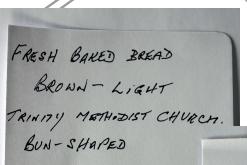 FRESH BAKED BREAD
BROWN - LIGHT
TRINITY METHODIST CHURCH.
BUN-SHAPED